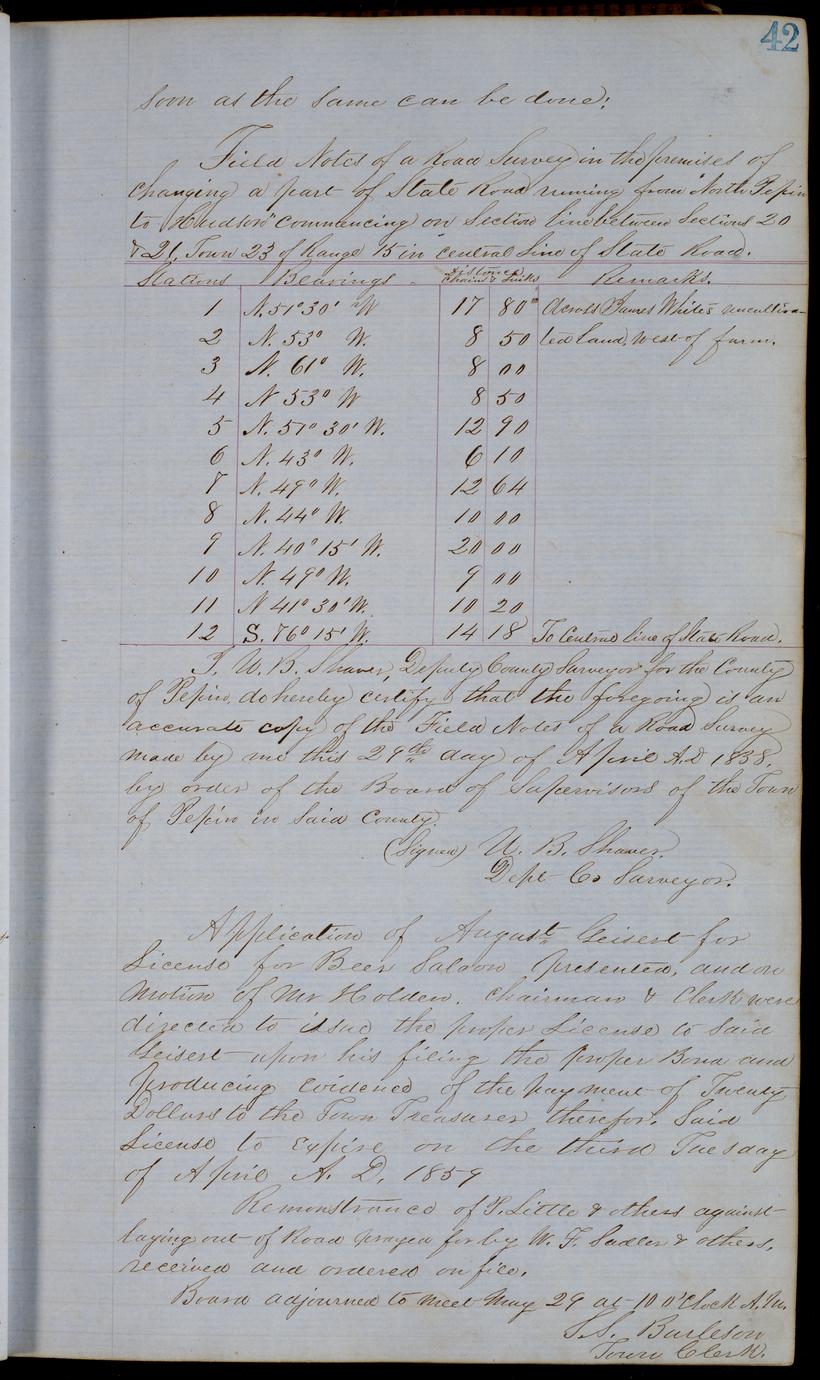 42
soon as the same can be done:
Field Notes of a Road Survey in the premises of
changing a part of State Road running from "North Pepin
to Hudson" commencing on Section line between Sections 20
& 21. Town 23 of Range 15 in central line of State Road.
Stations Bearings. Distance Chains & Links Remarks.
1 N. 51° 30' W 17 80 Across James White's uncultiva-
2 N. 53° W. 8 50 ted land, west of farm.
3 N. 61° W. 8 00
4 N 53° W 8 50
5 N. 51° 30' W. 12 90
6 N. 43° W. 6 10
7 N. 49° W. 12 64
8 N. 44° W. 10 00
9 N. 40° 15' W. 20 00
10 N. 49° W. 9 00
11 N 41° 30' W. 10 20
12 S. 76° 15' W. 14 18 To Central line of State Road.
I, U. B. Shaver, Deputy County Surveyor for the County
of Pepin, do hereby certify that the foregoing is an
accurate copy of the Field Notes of a Road Survey
made by me this 29th day of April A.D 1858,
by order of the Board of Supervisors of the Town
of Pepin in said County.
(Signed) U. B. Shaver.
Dept Co Surveyor.
Application of August Geisert for
License for Beer Saloon presented, and on
motion of Mr Holden. Chairman & Clerk were
directed to issue the proper License to said
Geisert upon his filing the proper Bond and
producing evidence of the payment of Twenty
Dollars to the Town Treasurer therefor. Said
License to expire on the third Tuesday
of April A. D. 1859
Remonstrance of P. Little & others against
laying out of Road prayed for by W. F. Sadler & others,
received and ordered on file.
Board adjourned to meet May 29 at 10 O'Clock A.M.
S.S. Burleson
Town Clerk.